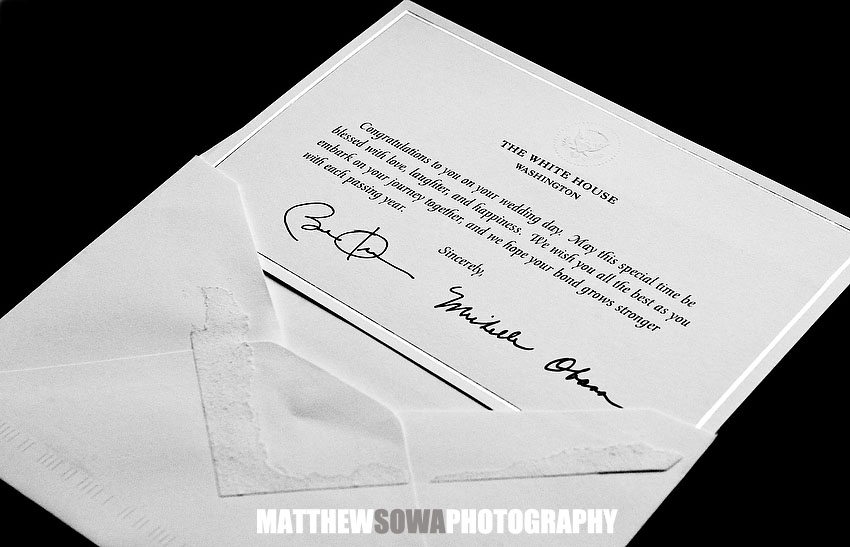 THE WHITE HOUSE
WASHINGTON
Congratulations to you on your wedding day. May this special time be
blessed with love, laughter, and happiness. We wish you all the best as you
embark on your journey together, and we hope your bond grows stronger
with each passing year.
Sincerely,
Michelle Obama
MATTHEWSOWAPHOTOGRAPHY